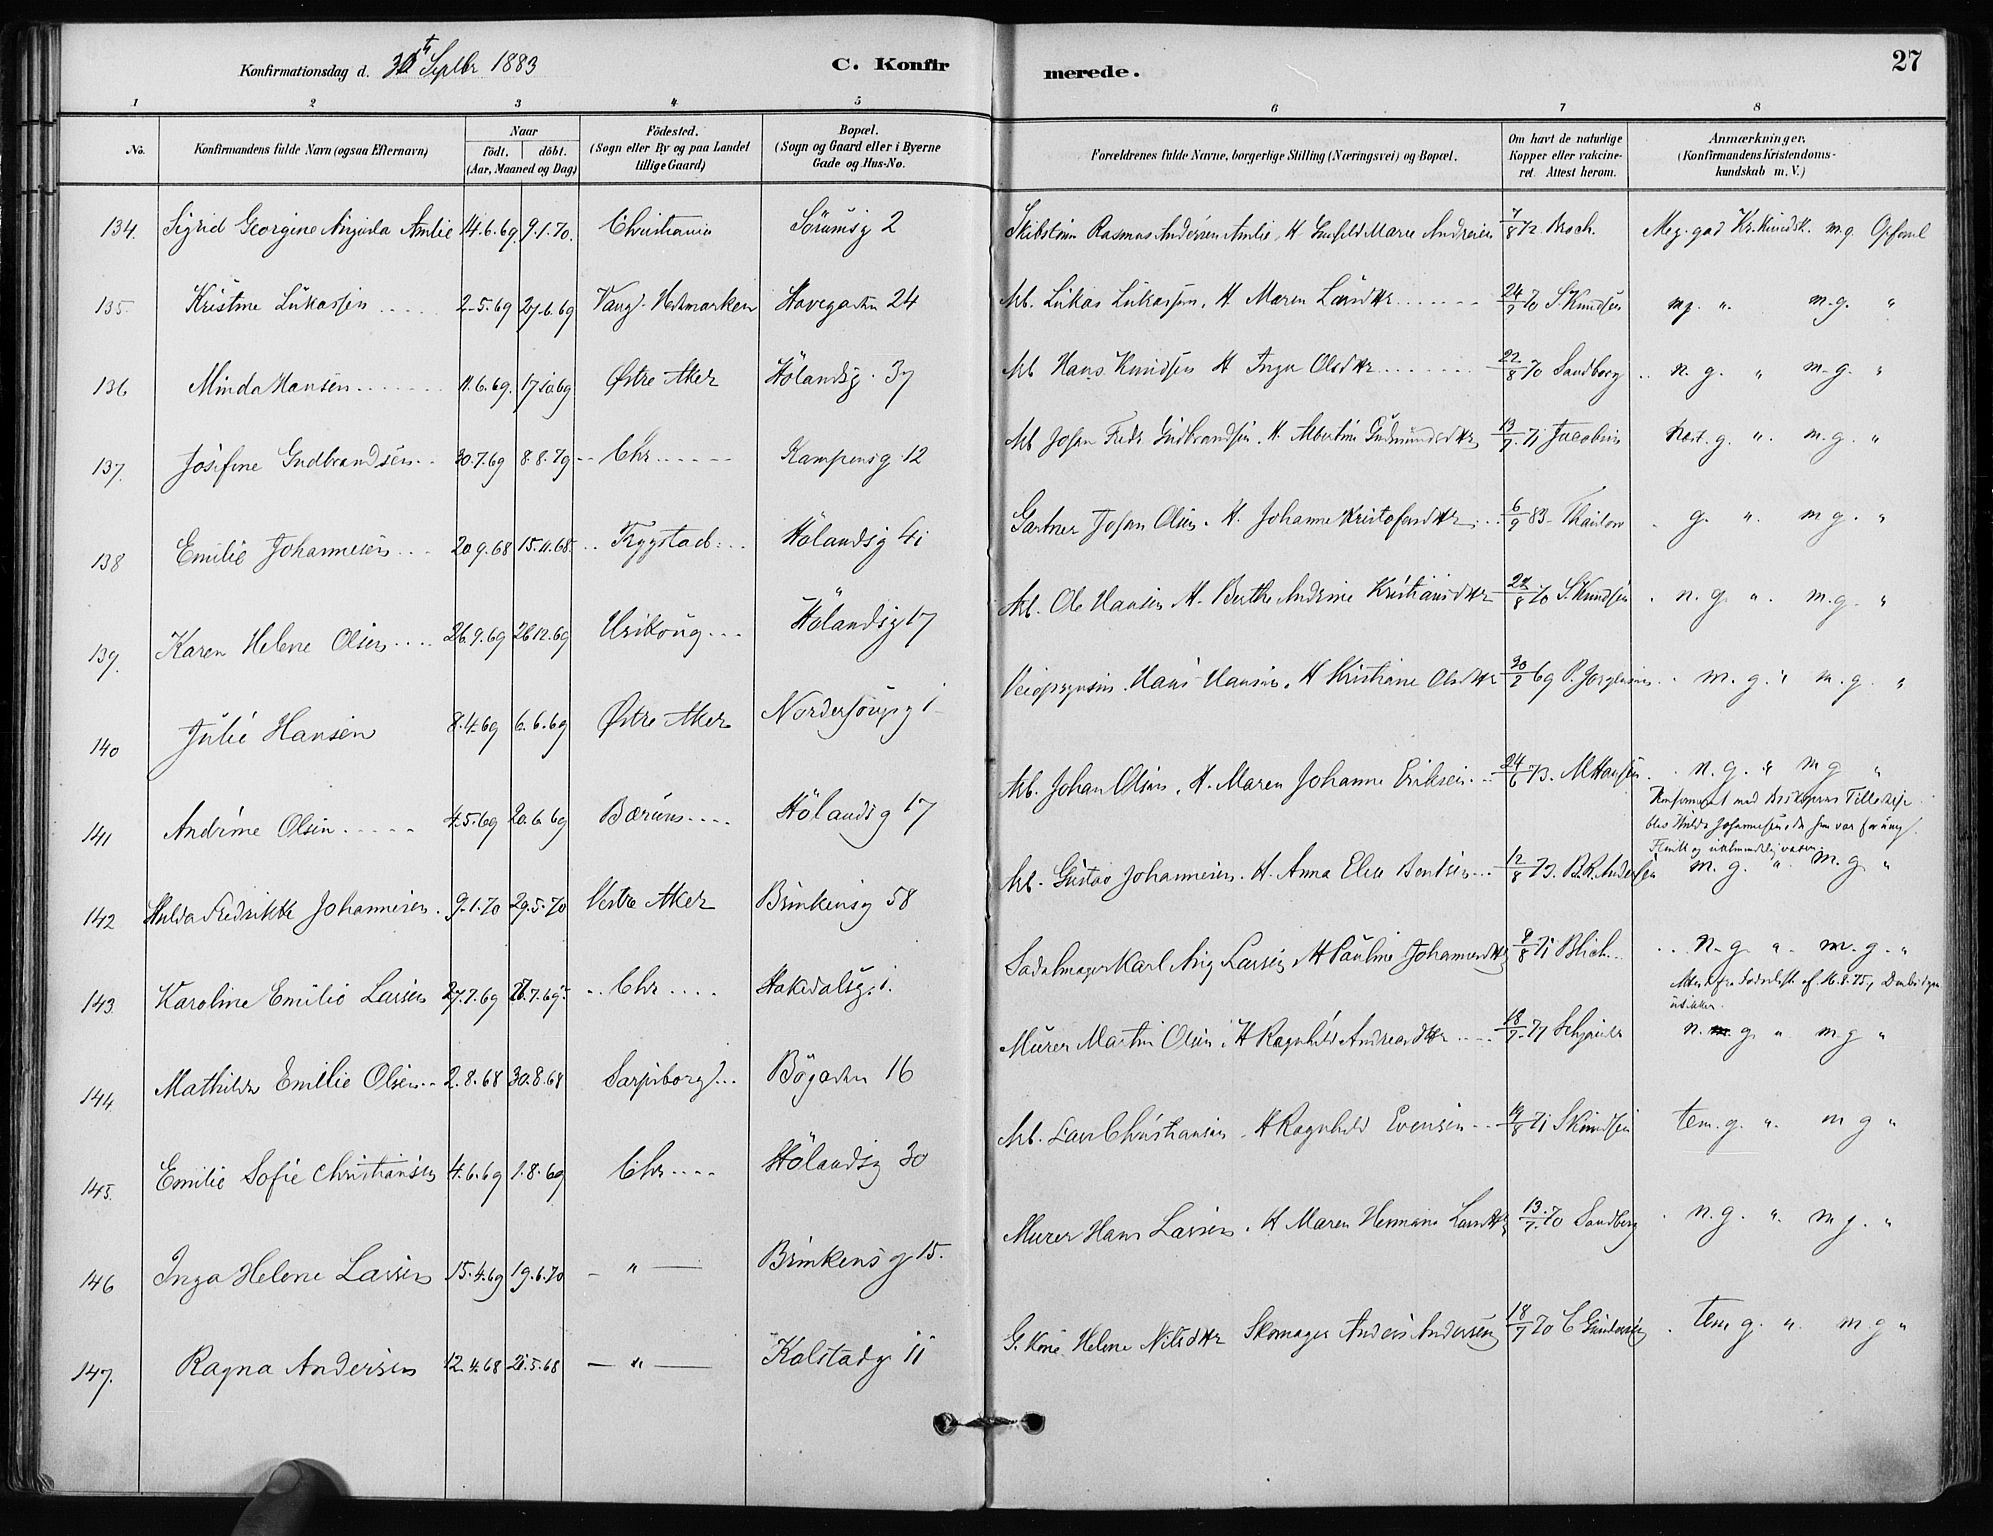 Konfirmationsdag d. 30t Septbr 1883
C. Konfirmerede.
27
1 2 3 4 5 6 7 8
No.
Konfirmandens fulde Navn (ogsaa Efternavn)
Naar
födt. döbt.
(Aar, Maaned og Dag)
Födested.
(Sogn eller By og paa Landet
tillige Gaard)
Bopæl.
(Sogn og Gaard eller i Byerne
Gade og Hus-No.
Forældrenes fulde Navne, borgerlige Stilling (Næringsvei) og Bopæl.
Om havt de naturlige
Kopper eller vakcine-
ret. Attest herom.
Anmærkninger.
(Konfirmandens Kristendoms-
kundskab m. V.)
134. Sigrid Georgine Amlie 14.6.69. 9.1.70. Christiania Sörumsg 2 Rasmus Andersen Amlie, H Marie 7/8 72 Broch. Meg. god Kr.kundsk. m.g. Opførsel
135. Kristine Lukassen 2.5.69 27.6.69 Vang. Hedmarken Havegaden 24 Arb. Lukas Lukassen, H. Maren Larsdtr. 24/7 70 S Knudsen mg. " m.g. "
136 Minda Hansen 11.6.69. 17.10.69 Østre Aker Hölandsg. 37 Arb Hans Knudsen H Inga Olsdtr. 22/8 70 Sandberg n. g. " m-g. "
137. Josefine Gudbrandsen 30.7.69 8.8.79 Chr. Kampensg 12 Arb Johan Fredr. Gudbrandsen. H. Albertine Gudmundsdtr. 13/7. 71 Jacobsen g. " m.g. "
138 Emilie Johannesen 20.9.68 15.11.68. Trygstad Hölandsg 41 Gartner Johan Olsen. H. Johanne Kristofersdtr. 6/9 83 Thaulow g. " m g. "
139. Karen Helene Olsen 26.9.69 26.12.69 Urskoug Hölandsg 17 Arb. Ole Hansen H. Berthe Andrine Kristiansdtr 22/8 70 S. Knudsen n. g. " m.g. "
140 Julie Hansen 8.4.69 6.6.69 Østre Aker 1 Hans Hansen. H Kristiane Olsdtr 69 P. m. g. " m. g. "
141 Andrine Olsen 4.5.69 20.6.69 Bærum Hölandsg 17 Arb. Johan Olsen, H. Maren Johanne Eriksen 24/6 73. M Hansen n. g. " m g "
Konfirmeret med Biskopens Tilladelse
blev Hulda Johannesen, da hun var for ung.
142 Hulda Fredrikke Johannesen. 9.1.70 29.5.70 Vestre Aker Brinkensg 58 Arb. Gustav Johannesen. H. Anna Elise Bentsen 12/8 73. B.R. Andersen m. g. " m. g "
143. Karoline Emilie Larsen 27.7.69 Chr. Hakedalsg. 1. Sadelmager Karl Aug Larsen H Pauline Johannesdtr 9/8 71 Blich n. g. " m. g. "
144. Mathilde Emilie Olsen 2.8.68 30.8.68 Sarpsborg Bögaden 16 Murer Martin Olsen, H Ragnhild Andreasdtr 18/7. 71 n. g " m g "
145. Emilie Sofie Christiansen 4.6.69 1.8.69 Chr. Hölandsg 30 Arb. Lars Christiansen. H Ragnhild Evensen 71 S Knudsen tem. g. " m g "
146 Inga Helene Larsen 15.4.69 19.6.70 — " — Brinkensg 15. Murer Hans Larsen. H Maren Hermana Larsdtr 13/7. 70 Sandberg n.g. " m g. "
147. Ragna Andersen 12.4.68 21.5.68 — " — Kalstadg 11 G. Kone Helene Nilsdtr Skomager Anders Andersen 18/7 70 C Gundersen tem g. " m.g "